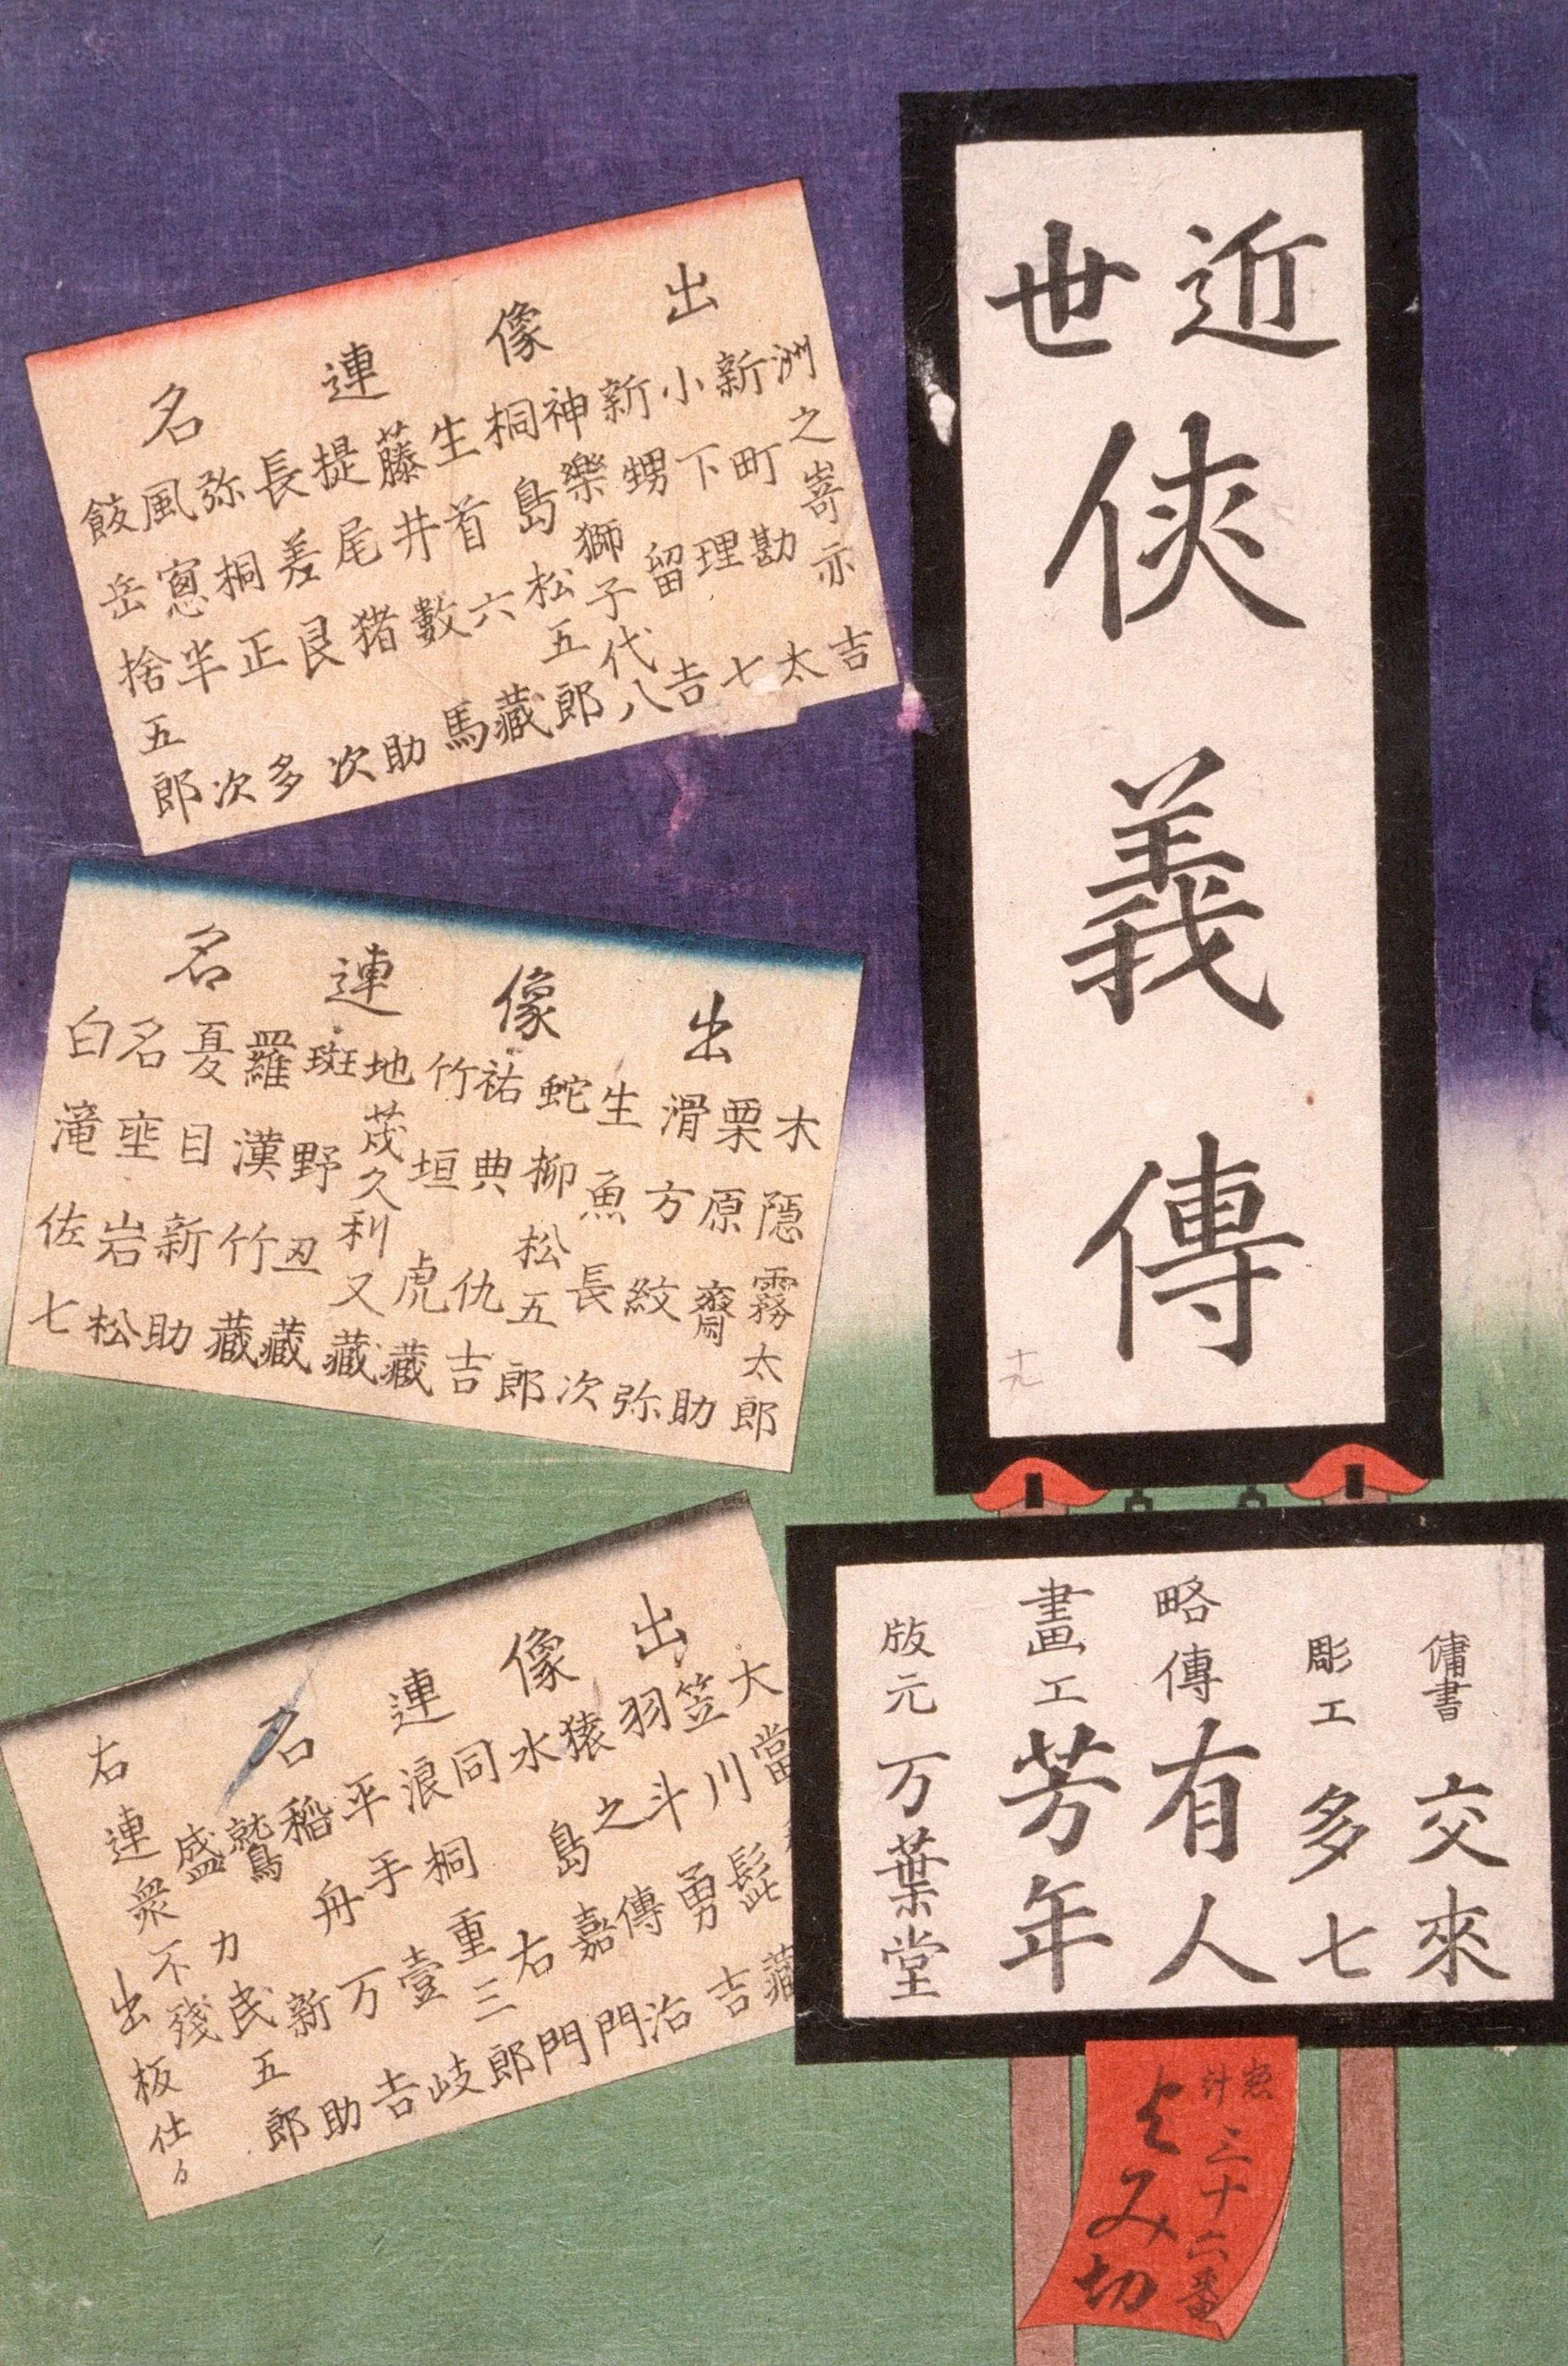 近世
侠義傳
傭書 交來
彫工 多七
略傳 有人
畫工 芳年
版元 万葉堂
三十六番
よみ切
出像連名
洲之嵜亦吉
新町勘太
小下理七
新甥留吉
神樂獅子代八
桐島松五郎
生首六藏
藤井數馬
提尾猪助
長差艮次
弥桐正多
風窻半次
飯岳捨五郎
出像連名
木隠霧太郎
栗原齋助
滑方紋弥
生魚長次
蛇柳松五郎
祐典仇吉
竹垣虎藏
地茂久利又藏
斑野丑藏
羅漢竹藏
夏目新助
名垂岩松
白滝佐七
出像連名
大當
笠川髭藏
羽斗勇吉
猿之傳治
水島嘉門
同右門
浪桐重三郎
平手壹岐
稲舟万吉
鷲新助
盛力民五郎
右連衆不残
出板仕
十九